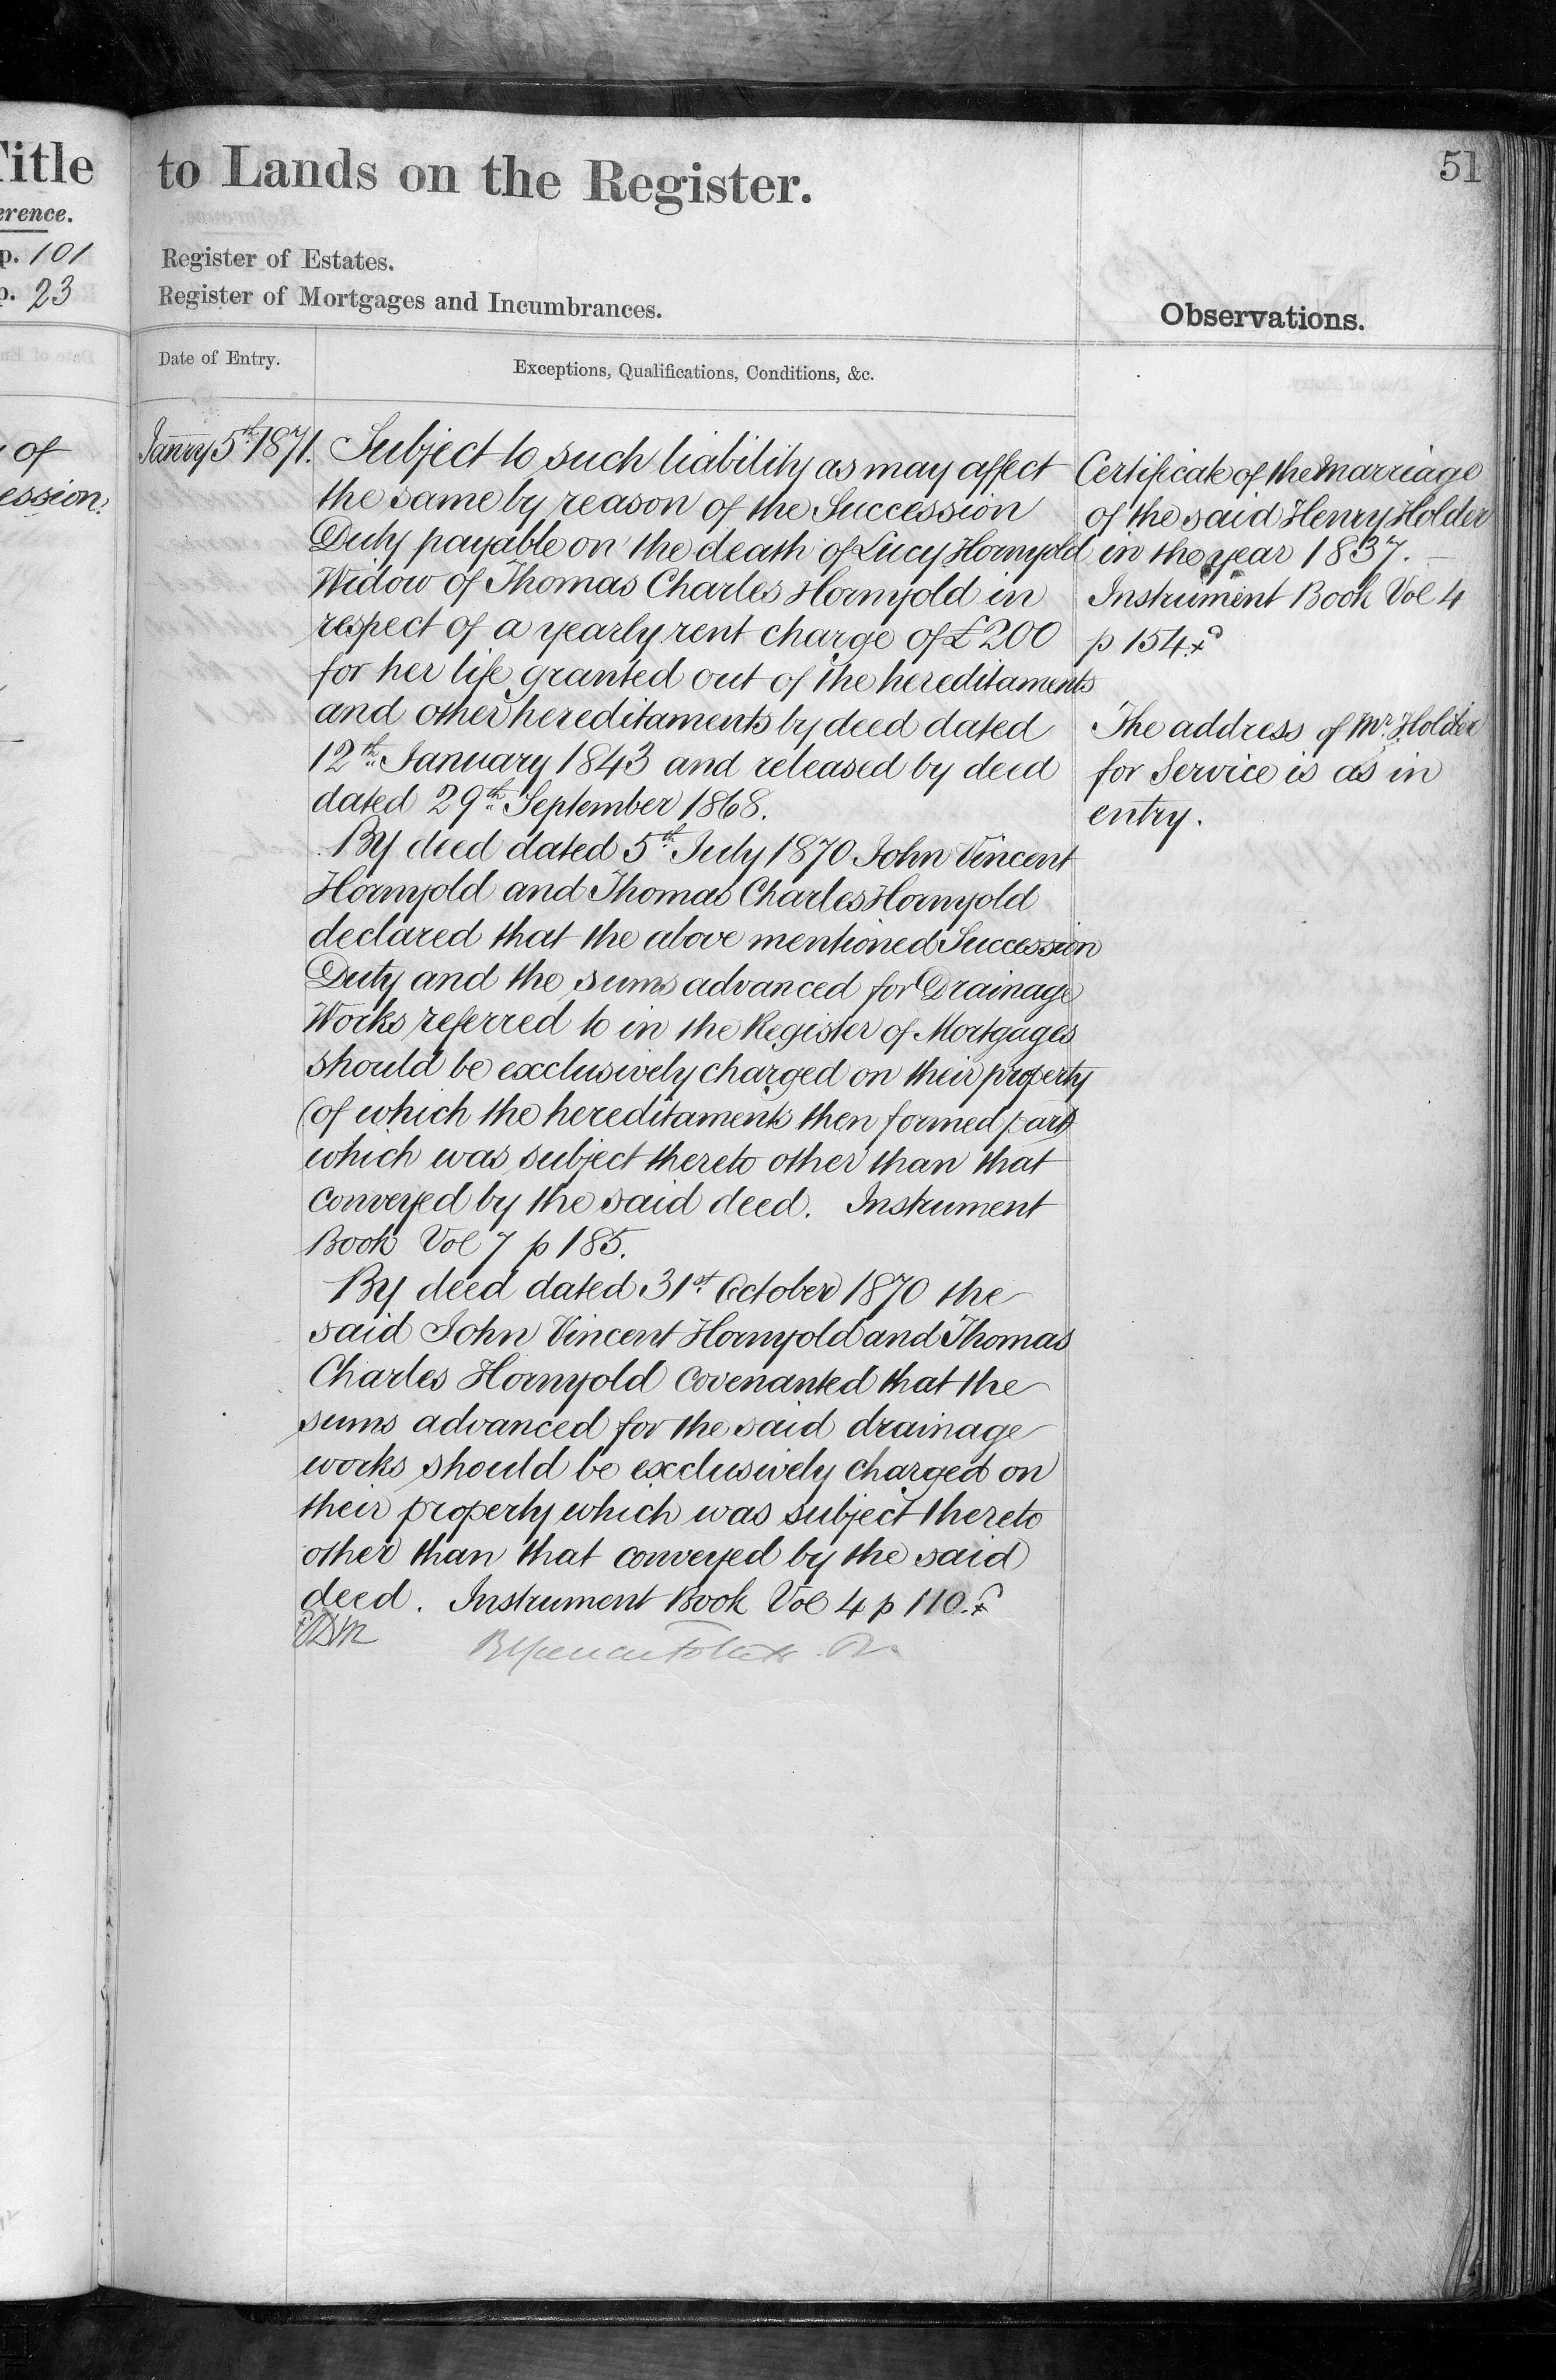 Title
erence.
p. 101
p. 23
of
ession.
to Lands on the Register.
51
Register of Estates.
Register of Mortgages and Incumbrances.
Observations.
Date of Entry.
Exceptions, Qualifications, Conditions, &c.
Janry 5th 1871.
Subject to such liability as may affect
the same by reason of the Succession
Duty payable on the death of Lucy Hornyold
Widow of Thomas Charles Hornyold in
respect of a yearly rent charge of £200
for her life granted out of the hereditaments
and other hereditaments by deed dated
12th January 1843 and released by deed
dated 29th September 1868.
By deed dated 5th July 1870 John Vincent
Hornyold and Thomas Charles Hornyold
declared that the above mentioned Succession
Duty and the sums advanced for Drainage
Works referred to in the Register of Mortgages
should be exclusively charged on their property
(of which the hereditaments then formed part)
which was subject thereto other than that
conveyed by the said deed. Instrument
Book Vol 7 p 185.
By deed dated 31st October 1870 the
said John Vincent Hornyold and Thomas
Charles Hornyold covenanted that the
sums advanced for the said drainage
works should be exclusively charged on
their property which was subject thereto
other than that conveyed by the said
deed. Instrument Book Vol 4 p 110.
Certificate of the Marriage
of the said Henry Holder
in the year 1837.
Instrument Book Vol 4
p 154
The address of Mr. Holder
for Service is as in
entry.